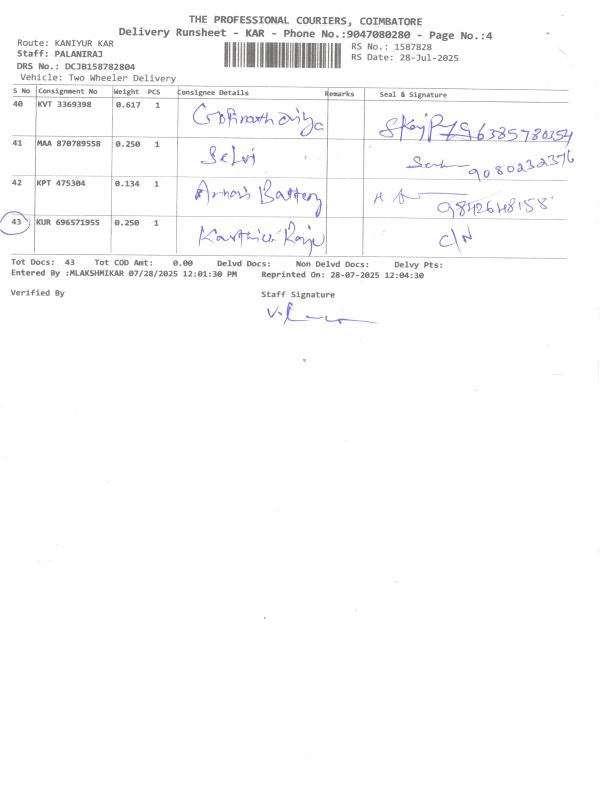 THE PROFESSIONAL COURIERS, COIMBATORE
Delivery Runsheet - KAR - Phone No.:9047080280 - Page No.:4
Route: KANIYUR KAR
RS No.: 1587828
Staff: PALANIRAJ
RS Date: 28-Jul-2025
DRS No.: DCJB158782804
Vehicle: Two Wheeler Delivery
S No Consignment No Weight PCS Consignee Details Remarks Seal & Signature
40 KVT 3369398 0.617 1 6385780354
41 MAA 870789558 0.250 1 Selvi 9080232376
42 KPT 475304 0.134 1 Battery 9842648158
43 KUR 696571955 0.250 1 Karthick Raja C/N
Tot Docs: 43 Tot COD Amt: 0.00 Delvd Docs: Non Delvd Docs: Delvy Pts:
Entered By :MLAKSHMIKAR 07/28/2025 12:01:30 PM Reprinted On: 28-07-2025 12:04:30
Verified By Staff Signature